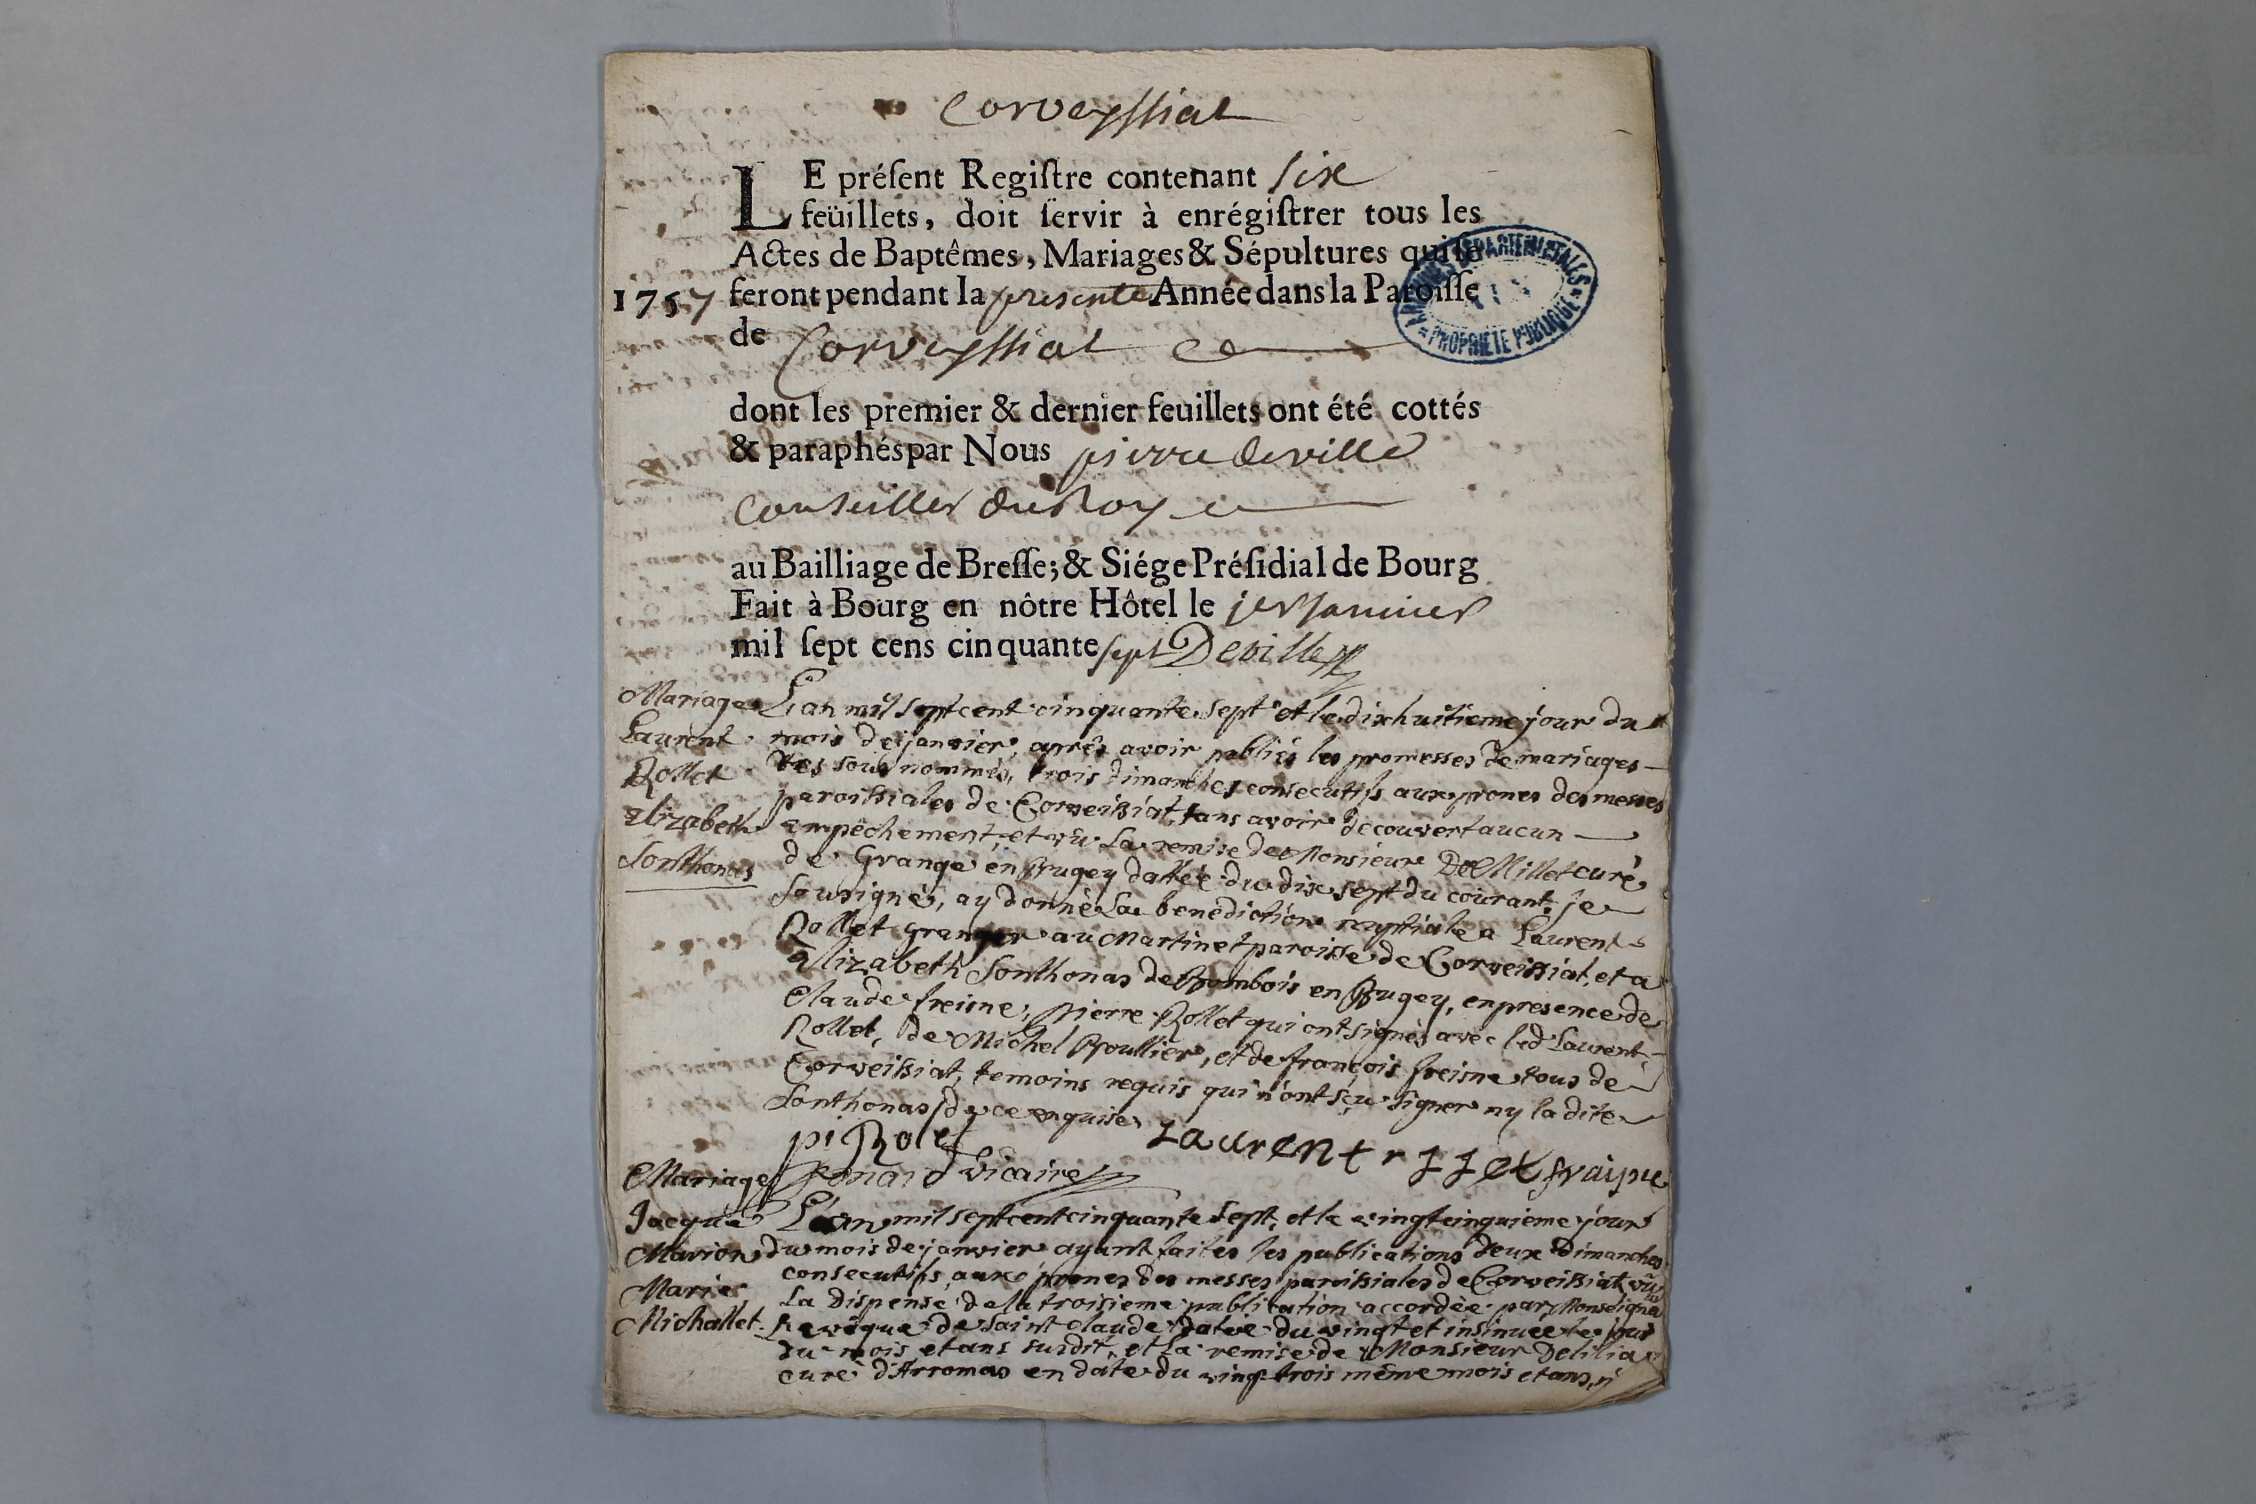 Corveyssiat
LE préſent Regiſtre contenant six
feüillets, doit ſervir à enrégiſtrer tous les
Actes de Baptêmes, Mariages & Sépultures qui ſe
1757 feront pendant la presente Année dans la Paroiſſe
de Corveyssiat
ARCHIVES DEPARTEMENTALES
PROPRIETE PUBLIQUE
dont les premier & dernier feuillets ont été cottés
& paraphés par Nous pierre deville
Conseiller du Roy
au Bailliage de Breſſe; & Siége Préſidial de Bourg
Fait à Bourg en nôtre Hôtel le 1er Janvier
mil ſept cens cinquante sept Deville
Mariage
Laurent
Rollet
Elizabeth
Sonthonas
L'an mil sept cent cinquante sept et le dixhuitieme jour du
mois de janvier, après avoir publiés les promesses de mariages
des sous nommés, trois dimanches consecutifs aux prones des messes
paroissiales de Corveissiat, sans avoir decouvert aucun
empêchement, et vû la remise de Monsieur De Millet curé
de Grange en Bugey dattée du dix sept du courant, je
sousigné, ay donné la benediction nuptiale a Laurent
Rollet granger au Martinet paroisse de Corveissiat, et a
Elizabeth Sonthonas de Bombois en Bugey, en presence de
Claude freisne, pierre Rollet qui ont signés avec led Laurent
Rollet, de Michel Boullier, et de françois freisne tous de
Corveissiat, temoins requis qui n'ont sçu signer ny la dite
Sonthonas de ce enquise
pi Rolet Laurent rollet fraisne
vicaire
Mariage
Jacque
Marion
Marie
Michallet
L'an mil sept cent cinquante sept, et le vingt cinquieme jour
du mois de janvier ayant faites les publications deux dimanches
consecutifs aux prones des messes paroissiales de Corveissiat, vû
la dispense de la troisieme publication accordée par Monseigneur
l'evêque de Saint Claude datée du vingt et insinuée le jour
du mois et ans susdit, et la remise de Monsieur Delilia
curé d'Arromas en date du vingt trois même mois et ans, j